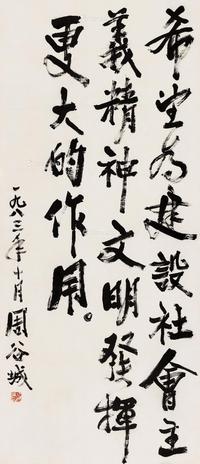 希望为建設社會主
義精神文明發揮
更大的作用。
一九八三年十月周谷城